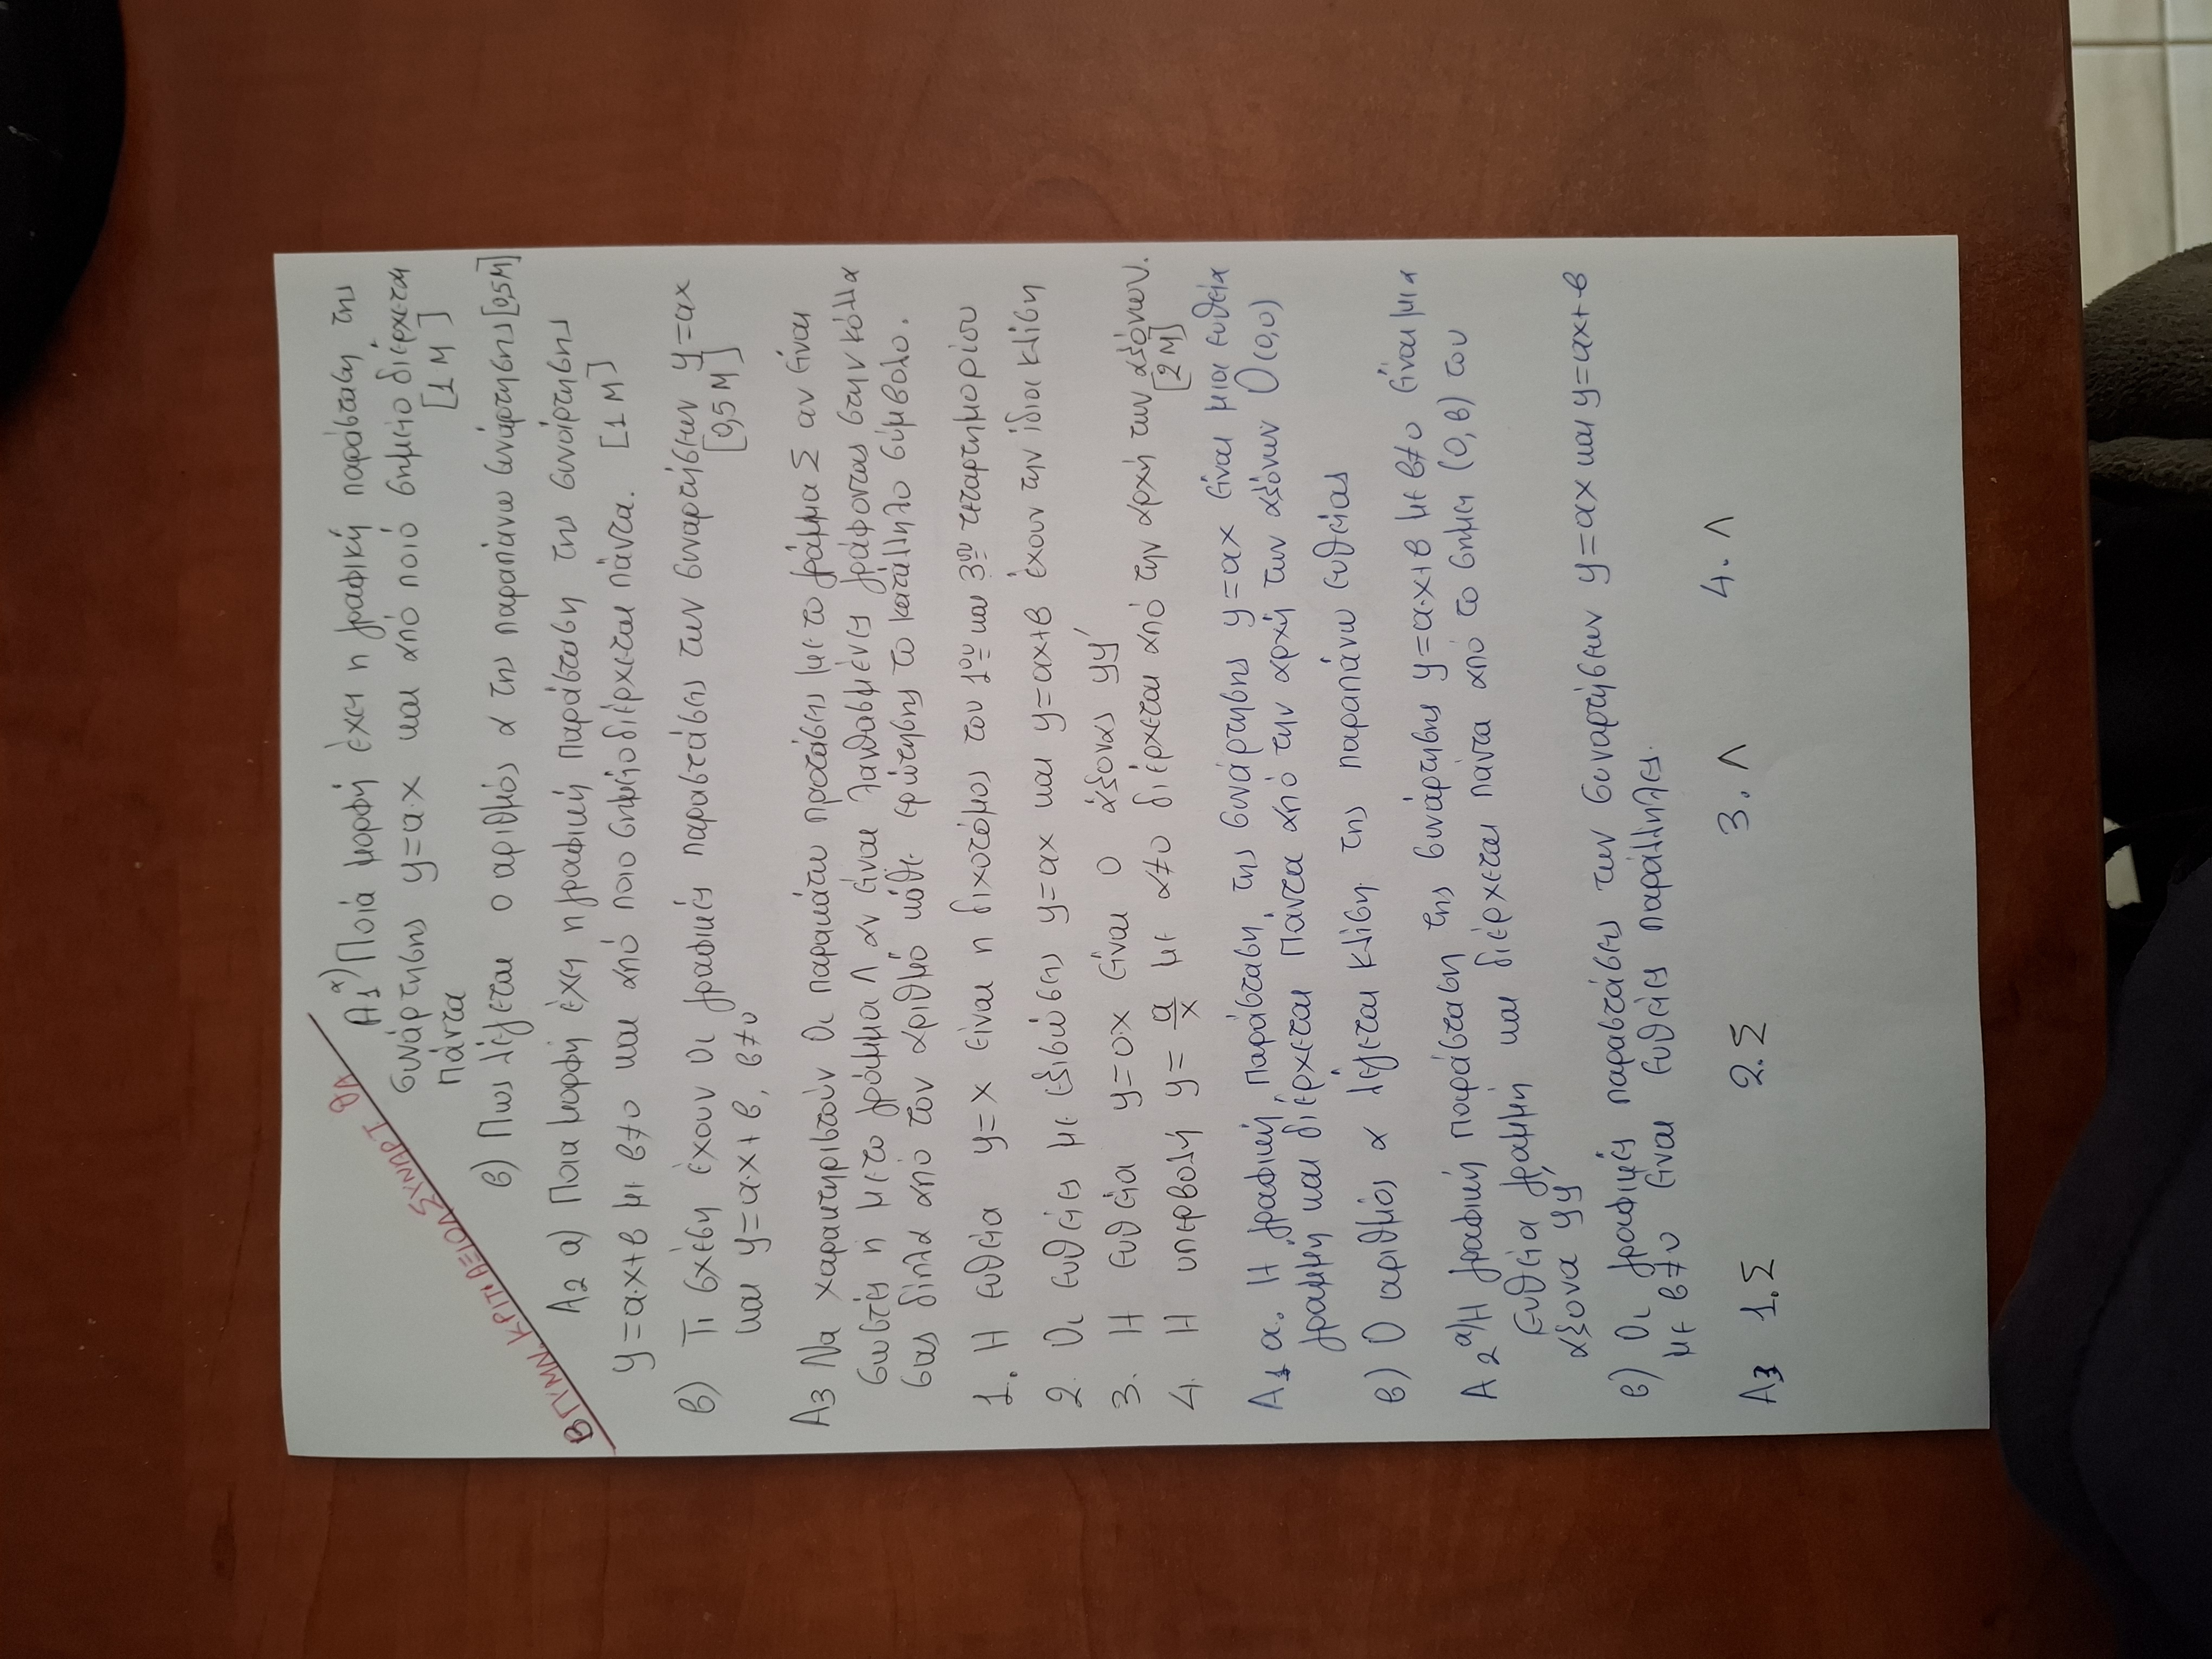 Β ΓΥΜΝ. ΚΡΙΤ. ΑΞΙΟΛ ΣΥΝΑΡΤ. ΘΑ
Α1 α) Ποιά μορφή έχει η γραφική παράσταση της
συνάρτησης y=α·x και από ποιό σημείο διέρχεται
πάντα [1 Μ]
β) Πως λέγεται ο αριθμός α της παραπάνω συνάρτησης [0,5Μ]
Α2 α) Ποια μορφή έχει η γραφική παράσταση της συνάρτησης
y=α·x+β με β≠0 και από ποιο σημείο διέρχεται πάντα. [1 Μ]
β) Τι σχέση έχουν οι γραφικές παραστάσεις των συναρτήσεων y=αx
και y=α·x+β, β≠0 [0,5 Μ]
Α3 Να χαρακτηριστούν οι παρακάτω προτάσεις με το γράμμα Σ αν είναι
σωστές η με το γράμμα Λ αν είναι λανθασμένες γράφοντας στην κόλλα
σας δίπλα από τον αριθμό κάθε ερώτησης το κατάλληλο σύμβολο.
1. Η ευθεία y=x είναι η διχοτόμος του 1ου και 3ου τεταρτημορίου
2. Οι ευθείες με εξισώσεις y=αx και y=αx+β έχουν την ίδια κλίση
3. Η ευθεία y=0x είναι ο άξονας yy'
4. Η υπερβολή y=α/x με α≠0 διέρχεται από την αρχή των αξόνων.
[2 Μ]
Α1 α. Η γραφική παράσταση της συνάρτησης y=αx είναι μια ευθεία
γραμμη και διέρχεται πάντα από την αρχή των αξόνων Ο(0,0)
β) Ο αριθμός α λέγεται κλίση της παραπάνω ευθείας
Α2 α) Η γραφική παράσταση της συνάρτησης y=α·x+β με β≠0 είναι μια
ευθεία γραμμή και διέρχεται πάντα από το σημει (0,β) του
άξονα yy'
β) Οι γραφικές παραστάσεις των συναρτήσεων y=αx και y=αx+β
με β≠0 είναι ευθείες παράλληλες.
Α3 1.Σ 2.Σ 3.Λ 4.Λ